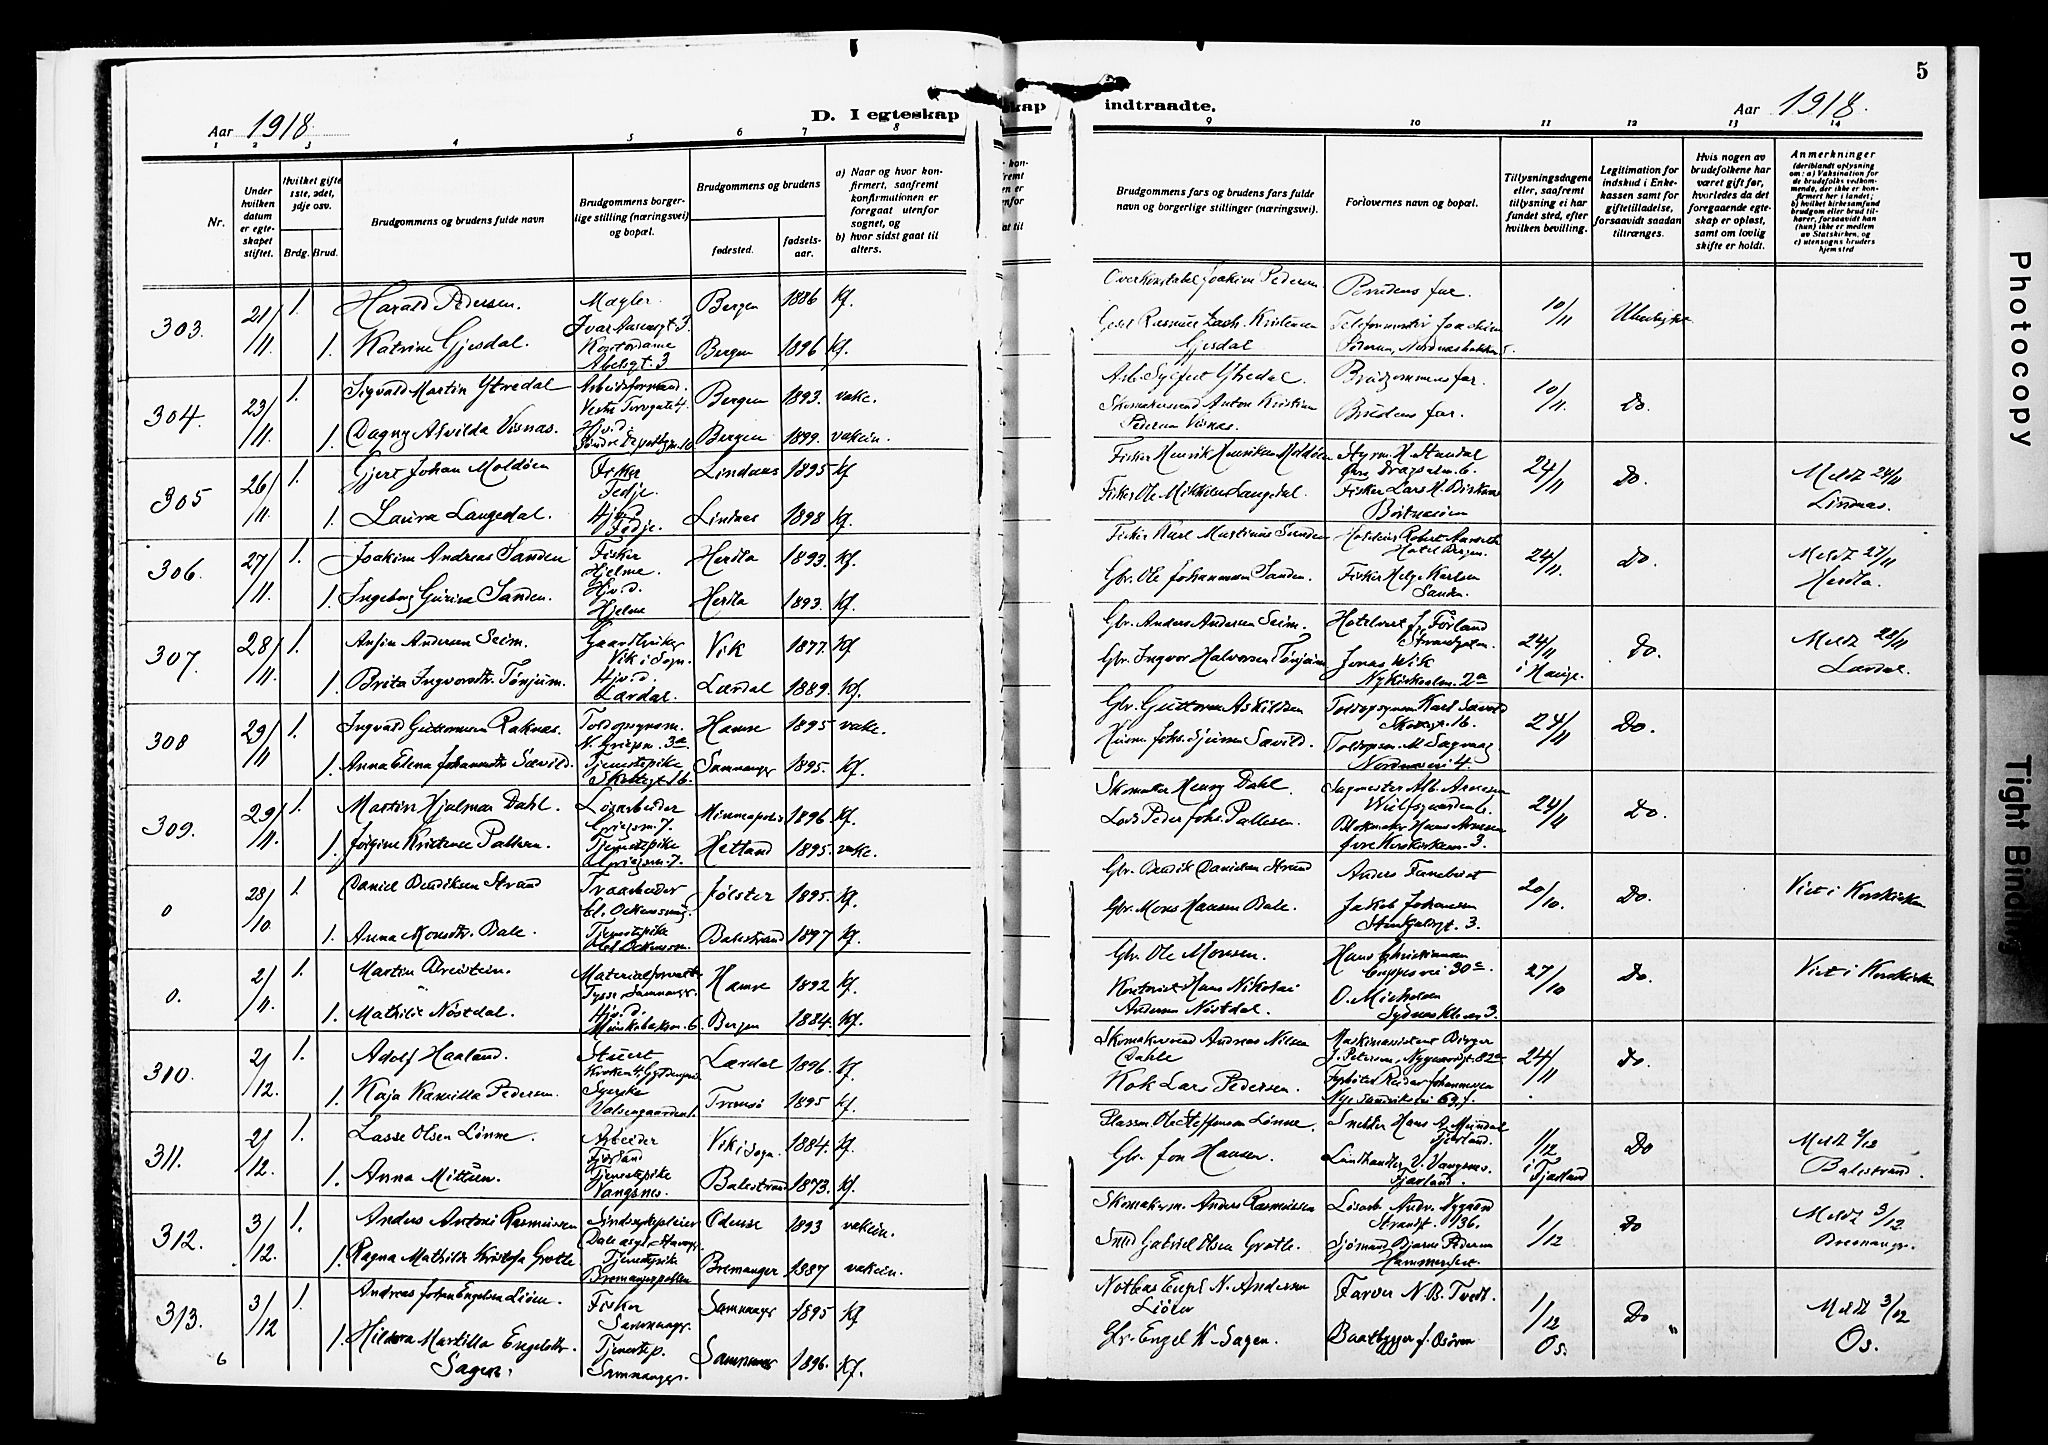 5
Aar 1918.
D. I egteskap
skap
indtraadte.
Aar 1918.
1 2 3 4 5 6 7 8
9 10 11 12 13 14
Nr.
Under hvilken datum er egteskapet stiftet.
Hvilket gifte 1ste, 2det, 3dje osv.
Brdg. Brud.
Brudgommens og brudens fulde navn
Brudgommens borgerlige stilling (næringsvei) og bopæl.
Brudgommens og brudens
fødested.
fødselsaar.
a) Naar og hvor konfirmert, saafremt konfirmationen er foregaat utenfor sognet, og
b) hvor sidst gaat til alters.
Brudgommens fars og brudens fars fulde navn og borgerlige stillinger (næringsvei).
Forlovernes navn og bopæl.
Tillysningsdagene eller, saafremt tillysning ei har fundet sted, efter hvilken bevilling.
Legitimation for indskud i Enkekassen samt for giftetilladelse, forsaavidt saadan tiltrænges.
Hvis nogen av brudefolkene har været gift før, hvorledes da det foregaaende egteskap er opløst, samt om lovlig skifte er holdt.
Anmerkninger
(deriblandt oplysning om: a) Vaksination for de brudefolks vedkommende, der ikke er konfirmert her i landet; b) hvilket kirkesamfund brudgom eller brud tilhører, forsaavidt han (hun) ikke er medlem av Statskirken, og c) utensogns bruders hjemsted
303. 21/11 1. Harald Pedersen. Mægler. Ivar Aasensgt 3 Bergen 1886 Kf. Overkonstabel Joakim Pedersen Brudens far. 10/11
1. Katrine Gjesdal. Kontordame Abelsgt. 3 Bergen 1896 Kf. Rasmus Zach. Kristensen Gjesdal Joachim Pedersen, Nordnesbakken 5.
304. 23/11 1. Sigvald Martin Ytredal Arbeidsformand. Vestre Torvgate 4. Bergen 1893. vakc. Arb. Sylfest Ytredal. Brudgommens far. 10/11. Do.
1. Dagny Alvilda Visnas. Hj.v.d. Bergen 1899. vakcin. Skomakersvend Anton Kristian Pedersen Visnas. Brudens far.
305 26/11 1. Gjert Johan Moldøen Fisker Fedje. Lindaas 1895 Kf Fisker Henrik Henriksen Moldøen Styrm. H. Standal Øvre Dragsalm. 6. 24/11 Do. Meldt 24/11 Lindaas.
1. Laura Langedal. Hjv.d. Fedje. Lindaas 1898 Kf. Fisker Ole Mikkelsen Langedal. Fisker Lars M.
306. 27/11 1. Joakim Andreas Sanden Fisker Hjelme. Herdla 1893. Kf. Fisker Karl Martinus Sanden Hotel Bergen. 24/11. Do. Meldt 27/11 Herdla.
1. Ingeborg Gurina Sanden. Hjv.d. Hjelme Herdla 1893. Kf. Gbr. Ole Johannesen Sanden. Fisker Helge Karlsen Sanden.
307. 28/11 1. Ansin Andersen Seim. Gaardbruker Vik i Sogn. Vik 1877. Kf Gbr. Anders Andersen Seim. Hotelvert J. Førland Strandgaten. 24/11 i Hauge. Do. Meldt 28/11 Lærdal.
1. Brita Ingvorsdtr. Tønjum. Hjv.d. Lærdal. Lærdal 1889. Kf. Gbr. Ingvor Halvorsen Tønjum Jonas Wik Nykirkealm. 2a
308 29/11 1. Ingvald Guttormsen Raknes. Toldopsynsm. N. Griegsm. 3a Hamre 1895 vakc. Gbr. Guttorm Askildsen Toldopsynsm Karl Sævild Skottegt. 16. 24/11 Do.
1. Anna Elena Johannesdtr Sævild. Tjenestepike Skottegt 16. Samnanger 1895. Kf. Husm. Johs. Sjursen Sævild. Nordnesvei 4.
309. 29/11 1. Martin Hjalmar Dahl. Løsarbeider Griegsm. 7. Minneapolis 1896. Kf. Skomaker Henry Dahl. Sagmester Alb. Arnesen Wulfsgaarden 6. 24/11 Do.
1. Jørgine Kristence Pallesen. Tjenestepike Griegsm. 7. Hetland 1895. vakc. Lods Peder Johs. Pallesen. Blokmaker Hans Arnesen Øvre Korskirkealm. 3.
0 28/10 1. Daniel Bendiksen Strand Traaarbeider Jølster 1895. Kf. Gbr. Bendik Danielsen Strand Anders Fanebust 20/10. Do. Viet i Korskirken
1. Anna Monsdtr. Bale. Tjenestepike Balestrand 1897 Kf. Gbr. Mons Hansen Bale. Jakob Johansen 3.
0. 2/11 1. Martin Breistein. Materialforvalter Tysse Samnanger. Hamre 1892 Kf. Gbr. Ole Monsen. Hans Christiansen 30c. 27/10 Do. Viet i Korskirken
1. Mathilde Nøstdal. Hjv.d. Munkebakm. 6. Bergen 1884. Kf. Kontorist Hans Nikolai Andersen Nøstdal. O. Michelsen Sydneskleven 3.
310. 2/12. 1. Adolf Haaland. Stuert Lærdal 1896. Kf. Skomakersvend Andreas Nilsen Dahle Maskinassistent Birger J. Petersen, Nygaardsgt. 82a 24/11 Do.
1. Kaja Kamilla Pedersen. Syerske Tromsø 1895 Kf. Kok Lars Pedersen. Fyrbøter Reidar Johannessen Nye Sandviksvei 69 f.
311. 2/12. 1. Lasse Olsen Lønne. Arbeider Fjærland Vik i Sogn. 1884. Kf. Plassm. Ole Steffensen Lønne. Snekker Hans A. Mundal Fjærland. 1/12 i Fjærland Do Meldt 2/12 Balestrand.
1. Anna Mittun. Tjenestepike Vangsnes. Balestrand 1873. Kf. Gbr. Jon Hansen. Landhandler V. Vangsnes. Fjærland.
312. 3/12. 1. Anders Antoni Rasmussen Sindssykepleier Odense 1893 vakcin. Skomakerm. Anders Rasmussen Løsarb. Andr. Nygaard Strandgt. 136. 1/12 Do Meldt 3/12. Bremanger.
1. Ragna Mathilde Kristofa Grotle Tjenestepike Bremangerpollen Bremanger 1887 vakcin. Gabriel Olsen Grotle. Sjømand Bjarne Pedersen Hammerfest.
313. 3/12 1. Andreas Johan Engelsen Liøen. Fisker Samnanger. Samnanger 1895 Kf Engel N. Andersen Liøen Farver N. B. Tvedt. 1/12 Os. Do Meldt 3/12 Os.
1. Hildora Martilla Engelsdtr. Sagen. Tjenestep. Samnanger. Samnanger 1896. Kf. Gbr. Engel K. Sagen. Baatbygger J. Osøren
6
Photocopy
Tight Binding